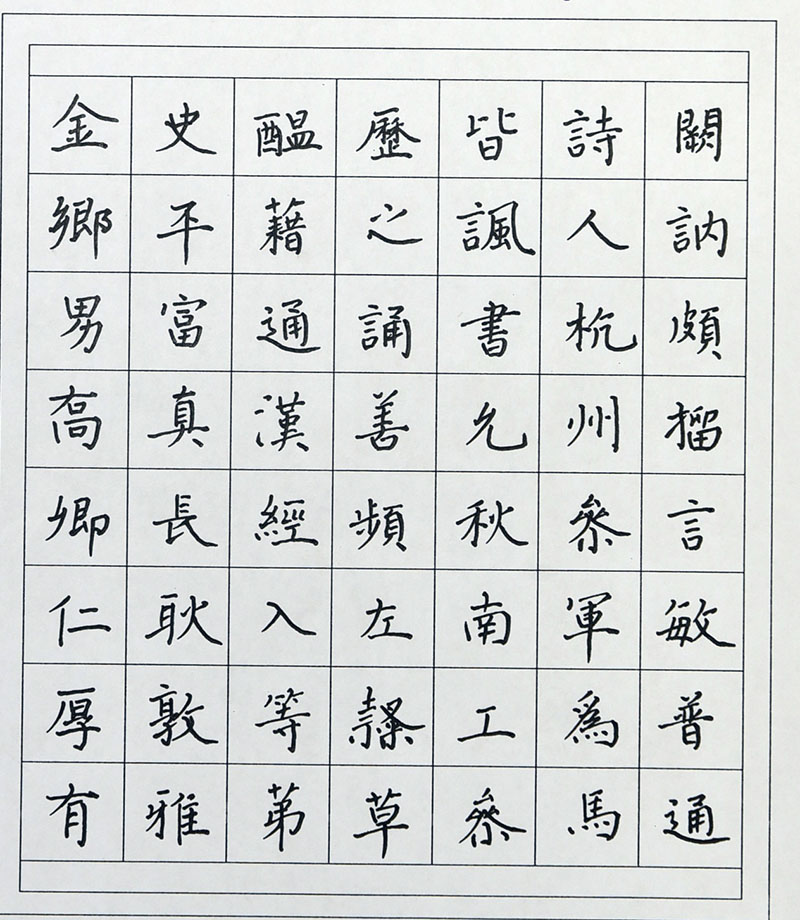 闕訥頗言敏普通
詩人杭州參軍爲馬
皆諷書允秋南工參
歷之誦善頻左隸草
醖藉通漢經入等第
史平富真長耿敦雅
金鄉男高卿仁厚有